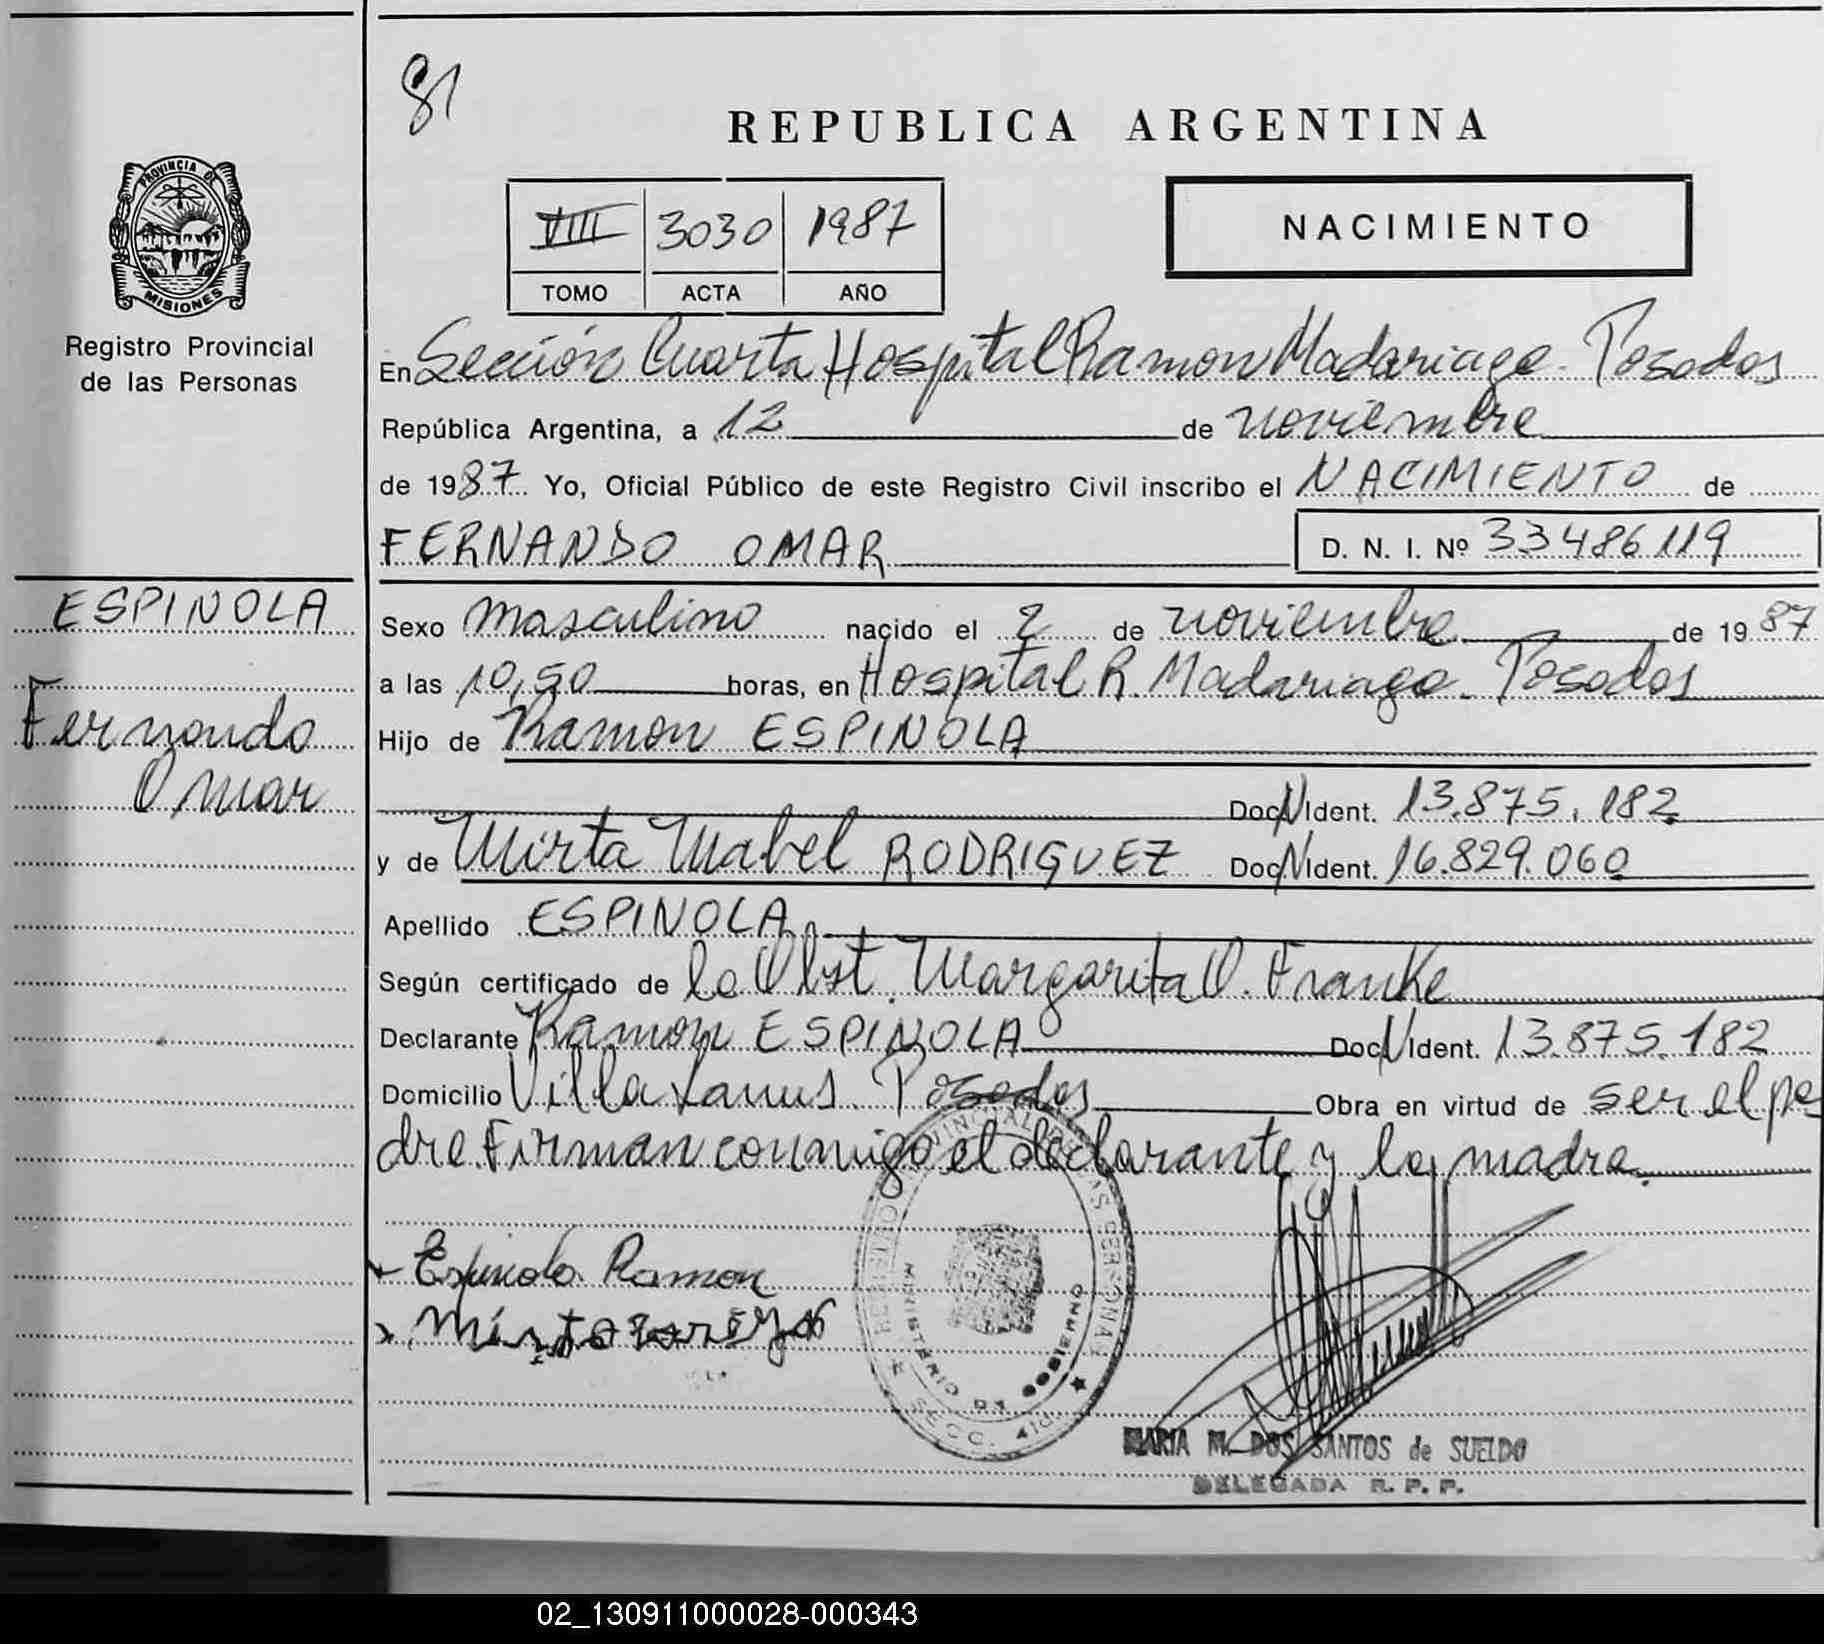 81
REPUBLICA ARGENTINA
PROVINCIA DE
MISIONES
Registro Provincial
de las Personas
VIII 3030 1987
TOMO ACTA AÑO
NACIMIENTO
En Sección Cuarta Hospital Ramon Madariaga. Posadas
República Argentina, a 12 de noviembre
de 1987 Yo, Oficial Público de este Registro Civil inscribo el NACIMIENTO de
FERNANDO OMAR D. N. I. Nº 33486119
ESPINOLA
Fernando
Omar
Sexo masculino nacido el 2 de noviembre de 1987
a las 10,50 horas, en Hospital R. Madariaga. Posadas
Hijo de Ramon ESPINOLA
Doc. N Ident. 13.875.182
y de Mirta Mabel RODRIGUEZ Doc. N Ident. 16.829.060
Apellido ESPINOLA
Según certificado de la Obst. Margarita O. Franke
Declarante Ramon ESPINOLA Doc. N Ident. 13.875.182
Domicilio Villa Lanus. Posadas Obra en virtud de ser el pa
dre. Firman conmigo el declarante y la madre.
Espinola Ramon
REGISTRO PROVINCIAL DE LAS PERSONAS
MINISTERIO DE GOBIERNO
SECC. 4ta.
MARIA M. DOS SANTOS de SUELDO
DELEGADA R. P. P.
02_130911000028-000343